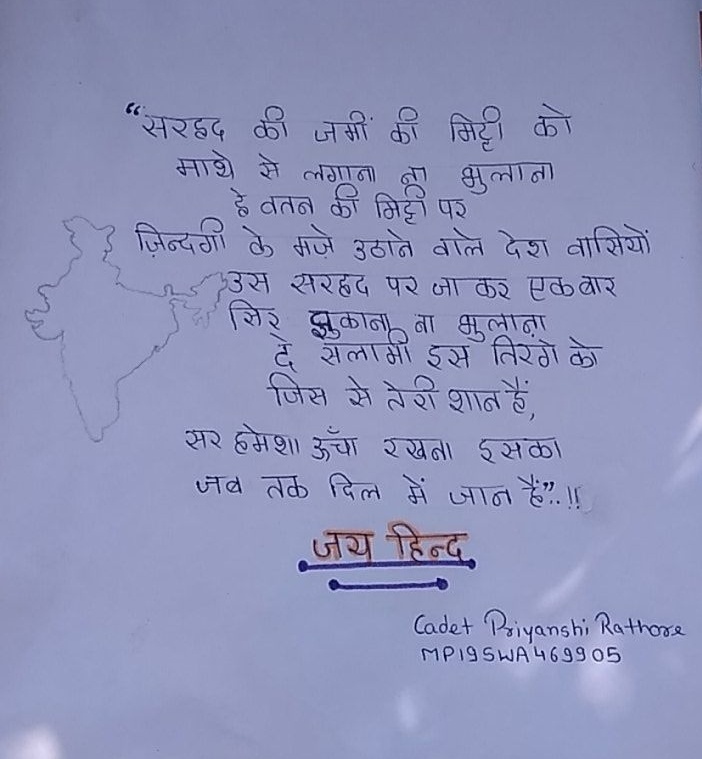 “सरहद की जमीं की मिट्टी को
माथे से लगाना ना भुलाना
हे वतन की मिट्टी पर
ज़िन्दगी के मज़े उठाने वाले देश वासियों
उस सरहद पर जा कर एक बार
सिर झुकाना ना भुलाना
दे सलामी इस तिरंगे को
जिस से तेरी शान हैं,
सर हमेशा ऊँचा रखना इसका
जब तक दिल में जान हैं”..!!
जय हिन्द
Cadet Priyanshi Rathore
MP19SWA469905